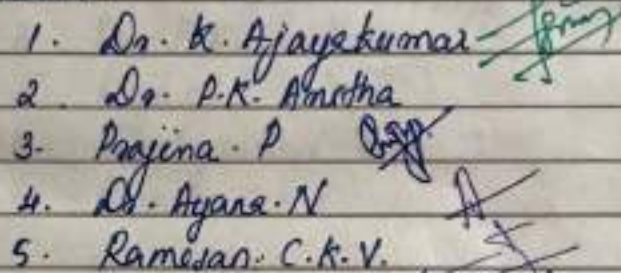 1. Dr. K. Ajayakumar
2. Dr. P.K. Amrtha
3. Prajina. P
4. Dr. Ayana. N
5. Ramesan. C.K.V.